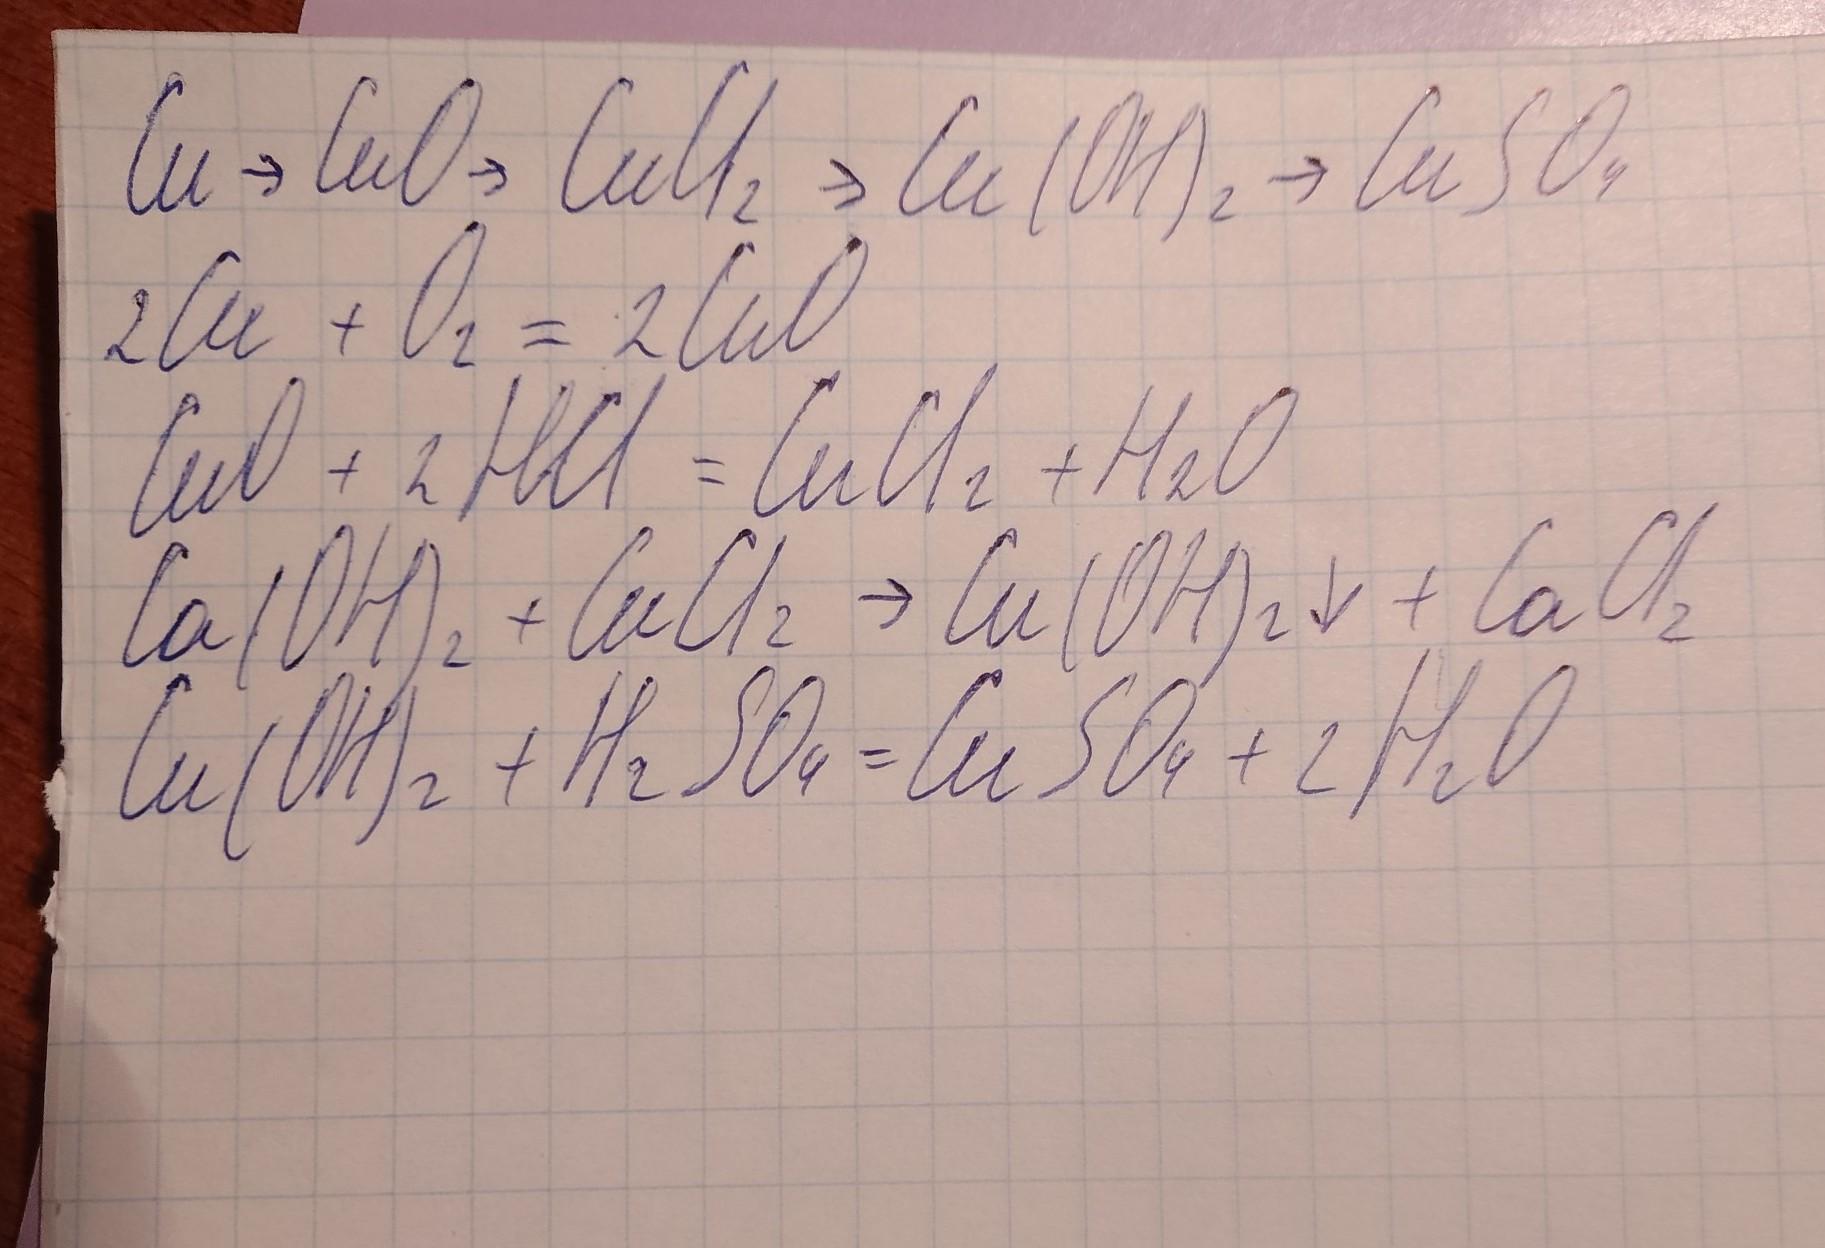 Cu → CuO → CuCl₂ → Cu(OH)₂ → CuSO₄
2Cu + O₂ = 2CuO
CuO + 2HCl = CuCl₂ + H₂O
Ca(OH)₂ + CuCl₂ → Cu(OH)₂↓ + CaCl₂
Cu(OH)₂ + H₂SO₄ = CuSO₄ + 2H₂O